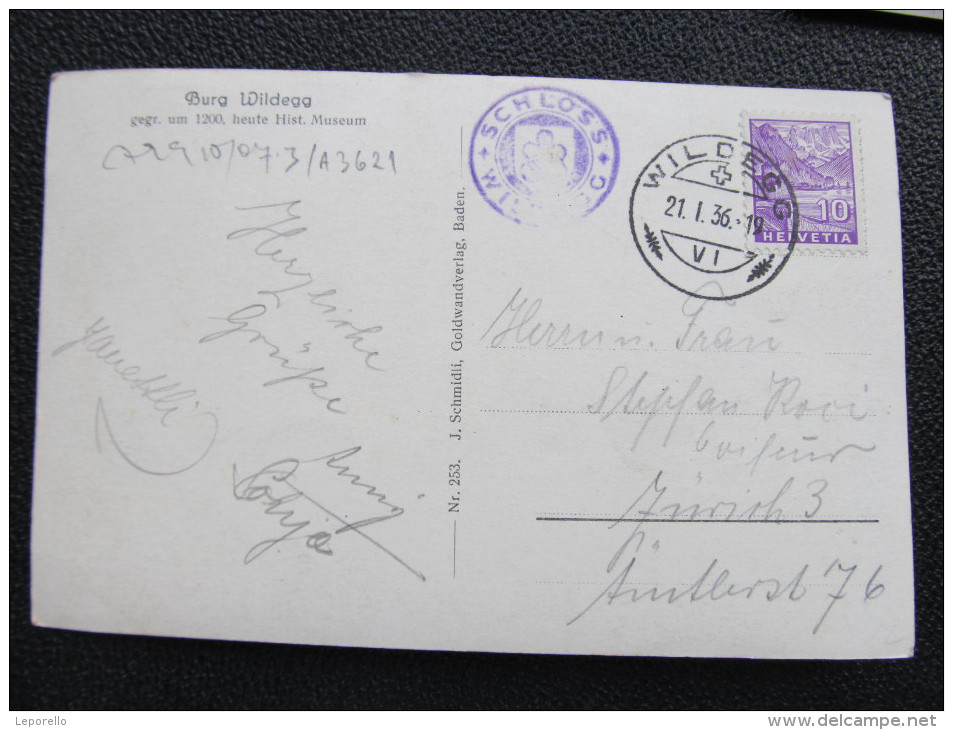 Burg Wildegg
gegr. um 1200, heute Hist. Museum
10/07.3/A3621
Herzliche
Grüße
Anny
Nr. 253. J. Schmidli, Goldwandverlag, Baden.
SCHLOSS
WILDEGG
21. I. 36.-19
VI
10
HELVETIA
Herrn u. Frau
Stephan
Coiffeur
Zürich 3
Ämtlerst 76
Leporello
www.delcampe.net